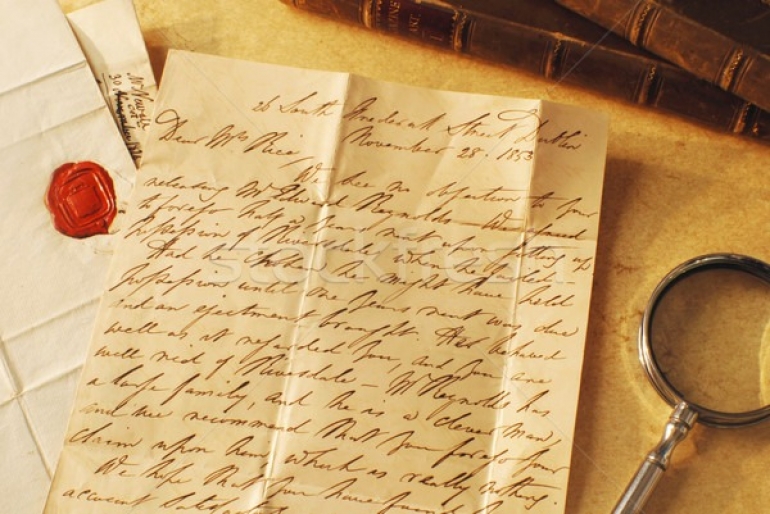 26 South Frederick Street Dublin
November 28. 1853
Dear Mr Rice,
We see no objection to your
releasing Mr Edward Reynolds — We
to forego half a years rent upon getting up
possession of Riversdale when he failed —
Had he he might have held
possession until one years rent was due
and an ejectment brought. He behaved
well as it regarded you, and you are
well rid of Riversdale — Mr Reynolds has
a large family, and he is a clever man,
and we recommend that you forego your
claim upon him which is really nothing.
We hope that you have
account
Mr
30
stockfresh